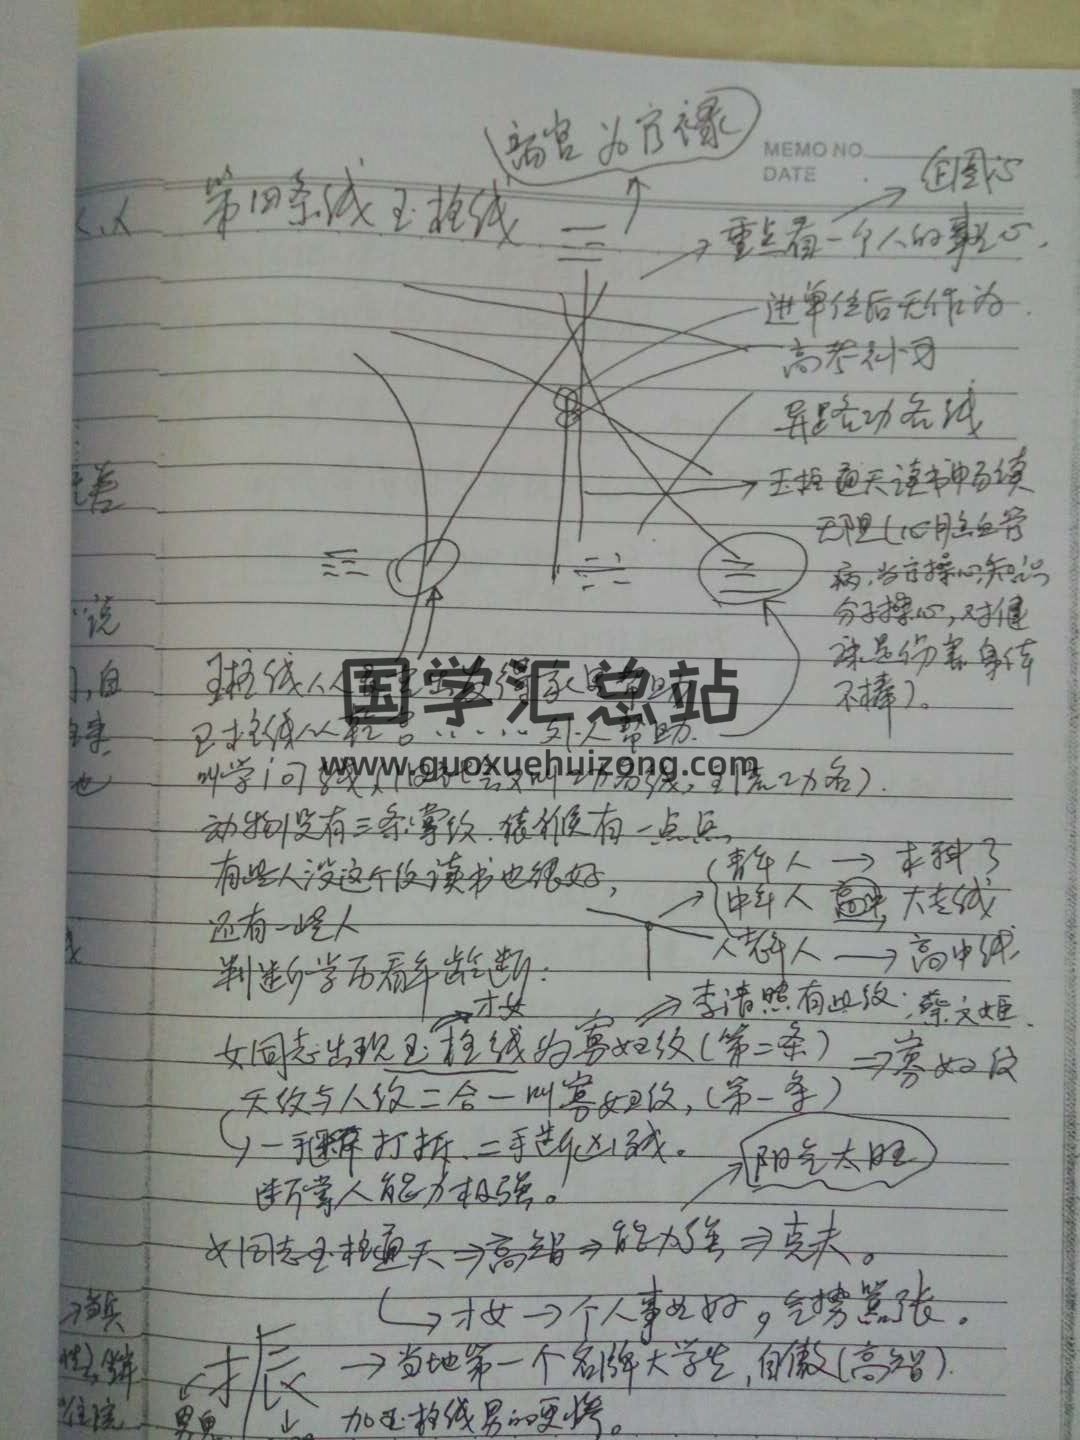 离宫为官禄
MEMO NO.
DATE
第四条线玉柱线
企图心
重点看一个人的事业心.
进单位后无作为.
高考补习
异路功名线
玉柱通天读书中多续
无阻(心脏血管
病,当官操心,知识
分子操心,对健
康是伤害身体
不棒)。
国学汇总站
www.guoxuehuizong.com
玉柱线从
家里帮助
玉柱线从乾宫……外人帮助.
叫学问线
功名)
动物没有三条掌纹.猿猴有一点点
有些人没这个纹读书也很好,
还有一些人
判断学历看年龄断:
青年人 → 本科了
中年人 大专线
老年人 → 高中线
才女
李清照有此纹;蔡文姬.
女同志出现玉柱线为寡妇纹(第二条)
⇒寡妇纹
天纹与人纹二合一叫寡妇纹,(第一条)
断掌人能力极强。
阳气太旺
女同志玉柱通天⇒高智⇒能力强⇒克夫。
才女→个人事业好,气势嚣张。
振
→当地第一个名牌大学生,自傲(高智).
加玉柱线男的更棒。
说
自
也
住院